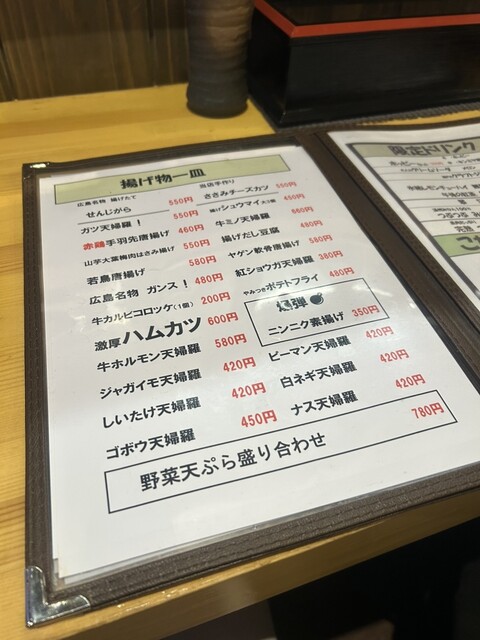 揚げ物一皿
広島名物 揚げたて
せんじがら 550円
ガツ天婦羅! 550円
赤鶏手羽先唐揚げ 460円
山芋大葉梅肉はさみ揚げ 550円
若鳥唐揚げ 580円
広島名物 ガンス! 480円
牛カルビコロッケ(1個) 200円
激厚ハムカツ 600円
牛ホルモン天婦羅 580円
ジャガイモ天婦羅 420円
しいたけ天婦羅 420円
ゴボウ天婦羅 450円
当店手作り
ささみチーズカツ 550円
揚げシュウマイ
牛ミノ天婦羅
揚げだし豆腐 480円
ヤゲン軟骨唐揚げ 580円
紅ショウガ天婦羅 380円
やみつきポテトフライ 480円
爆弾
ニンニク素揚げ 350円
ピーマン天婦羅 420円
白ネギ天婦羅 420円
ナス天婦羅 420円
野菜天ぷら盛り合わせ 780円
限定ドリンク